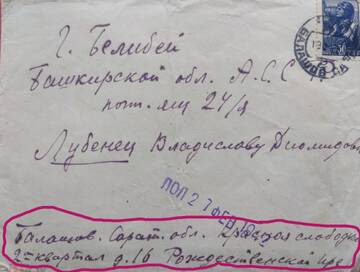 г. Белибей
Башкирской обл. А.С.С.
почт. ящ 24/я
Лубенец Владиславу Диомидов
ПОЛ 2 1 ФЕВ
Балашов. Сарат. обл. Красная слободка
2-й квартал д. 16 Рождественской Ире